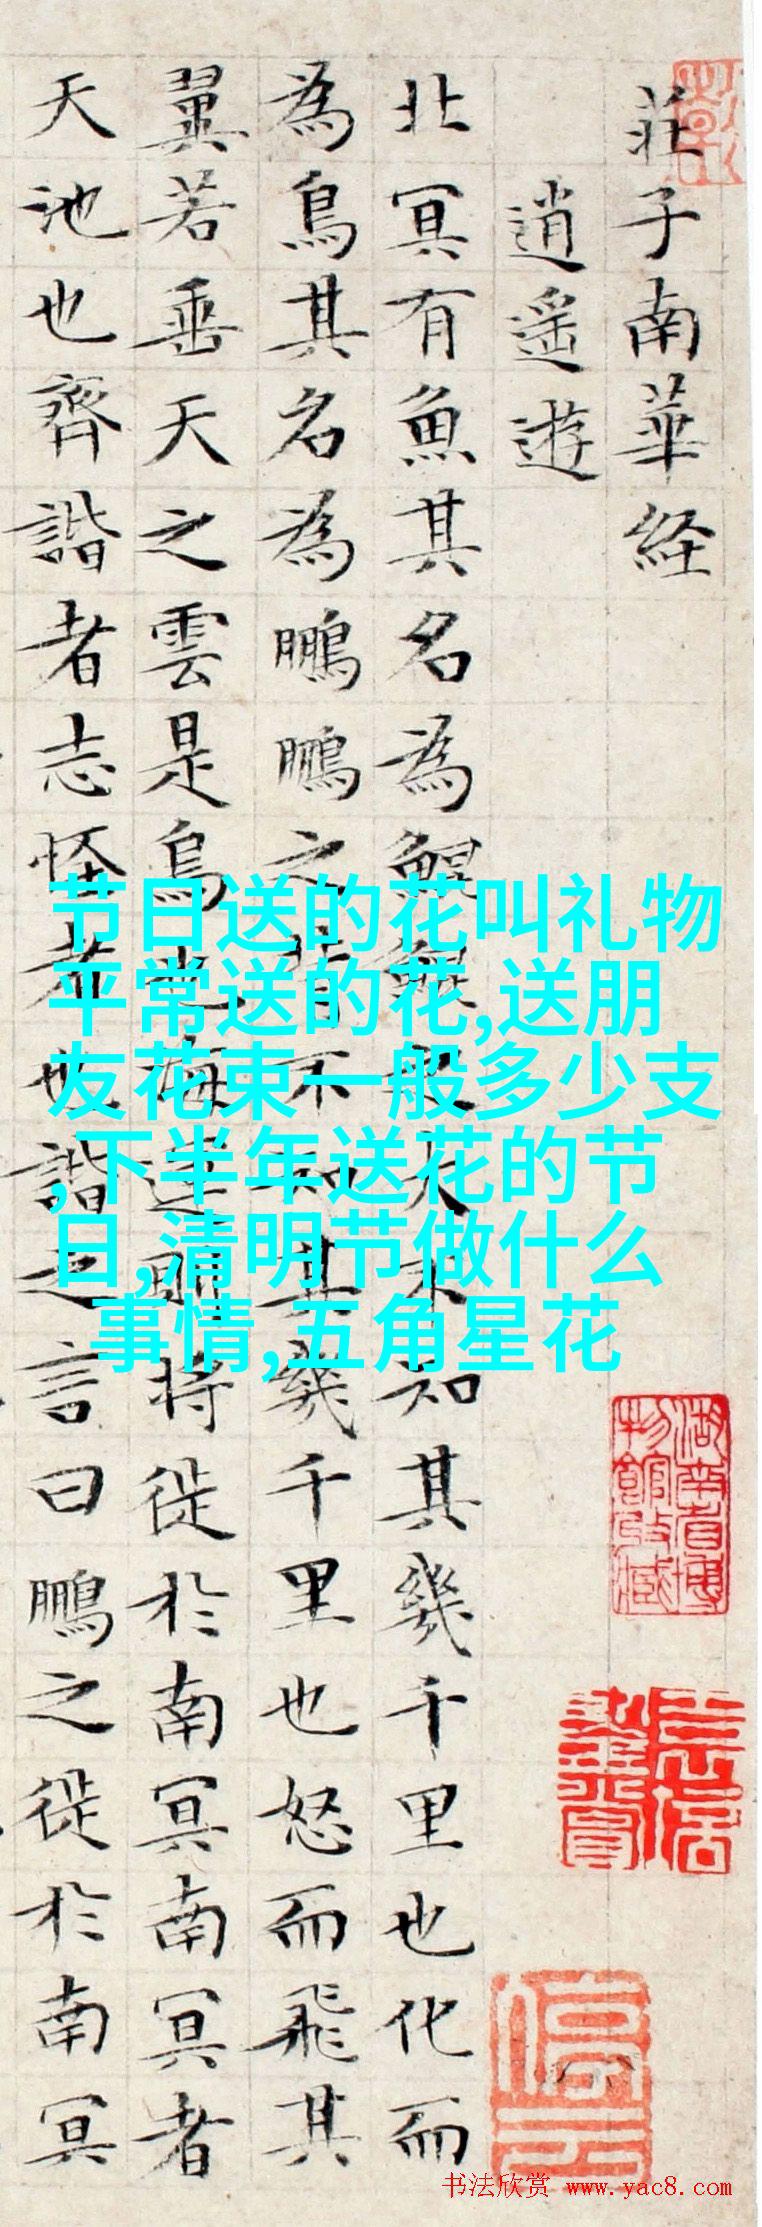 莊子南華経
逍遥遊
北冥有魚其名為鯤鯤之大不知其幾千里也化而
為鳥其名為鵬鵬之背不知其幾千里也怒而飛其
翼若垂天之雲是鳥也海運則將徙於南冥南冥者
天池也齊諧者志怪者也諧之言曰鵬之徙於南冥
节日送的花叫礼物
平常送的花,送朋
友花束一般多少支
,下半年送花的节
日,清明节做什么
事情,五角星花
湖南省博
物館收藏
书法欣赏 www.yac8.com